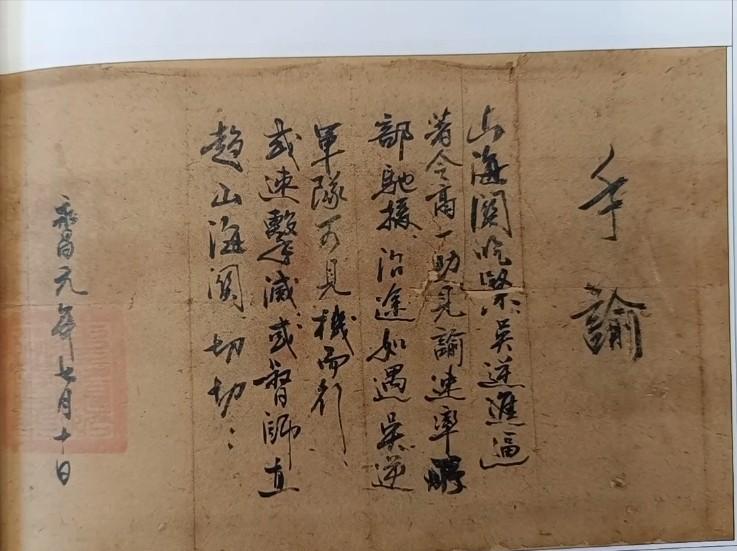 手諭
山海關吃緊吳逆進逼
著令高一功見諭速率
部馳援、沿途如遇吳逆
軍隊可見機而行、
或速擊滅或督師直
趨山海關切切：
永昌元年七月十日